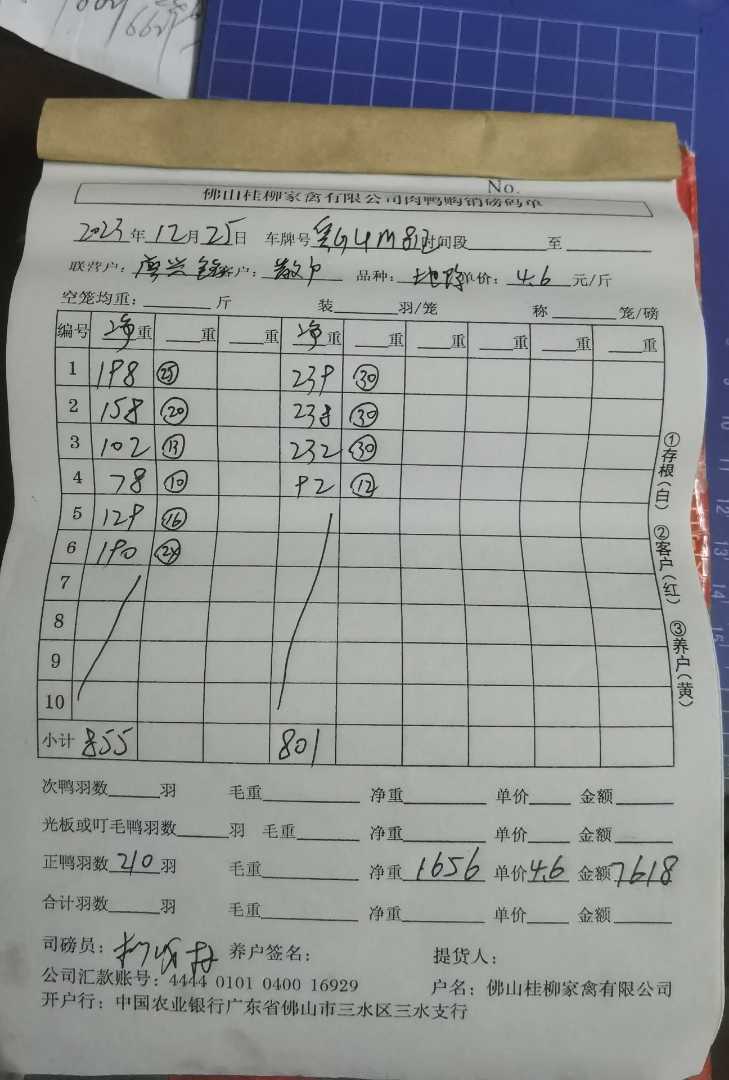 No.
佛山桂柳家禽有限公司肉鸭购销磅码单
2023年12月25日 车牌号 时间段 至
联营户： 客户：散户 品种： 单价：4.6 元/斤
空笼均重： 斤 装 羽/笼 称 笼/磅
编号 净重 重 重 净重 重 重 重 重 重
1 198 25 239 30
2 158 20 238 30
3 102 13 232 30
4 78 10 92 12
5 129 16
6 190 24
7
8
9
10
小计 855 801
①存根(白) ②客户(红) ③养户(黄)
次鸭羽数 羽 毛重 净重 单价 金额
光板或叮毛鸭羽数 羽 毛重 净重 单价 金额
正鸭羽数 210 羽 毛重 净重 1656 单价 4.6 金额 7618
合计羽数 羽 毛重 净重 单价 金额
司磅员： 养户签名： 提货人：
公司汇款账号：4444 0101 0400 16929 户名：佛山桂柳家禽有限公司
开户行：中国农业银行广东省佛山市三水区三水支行